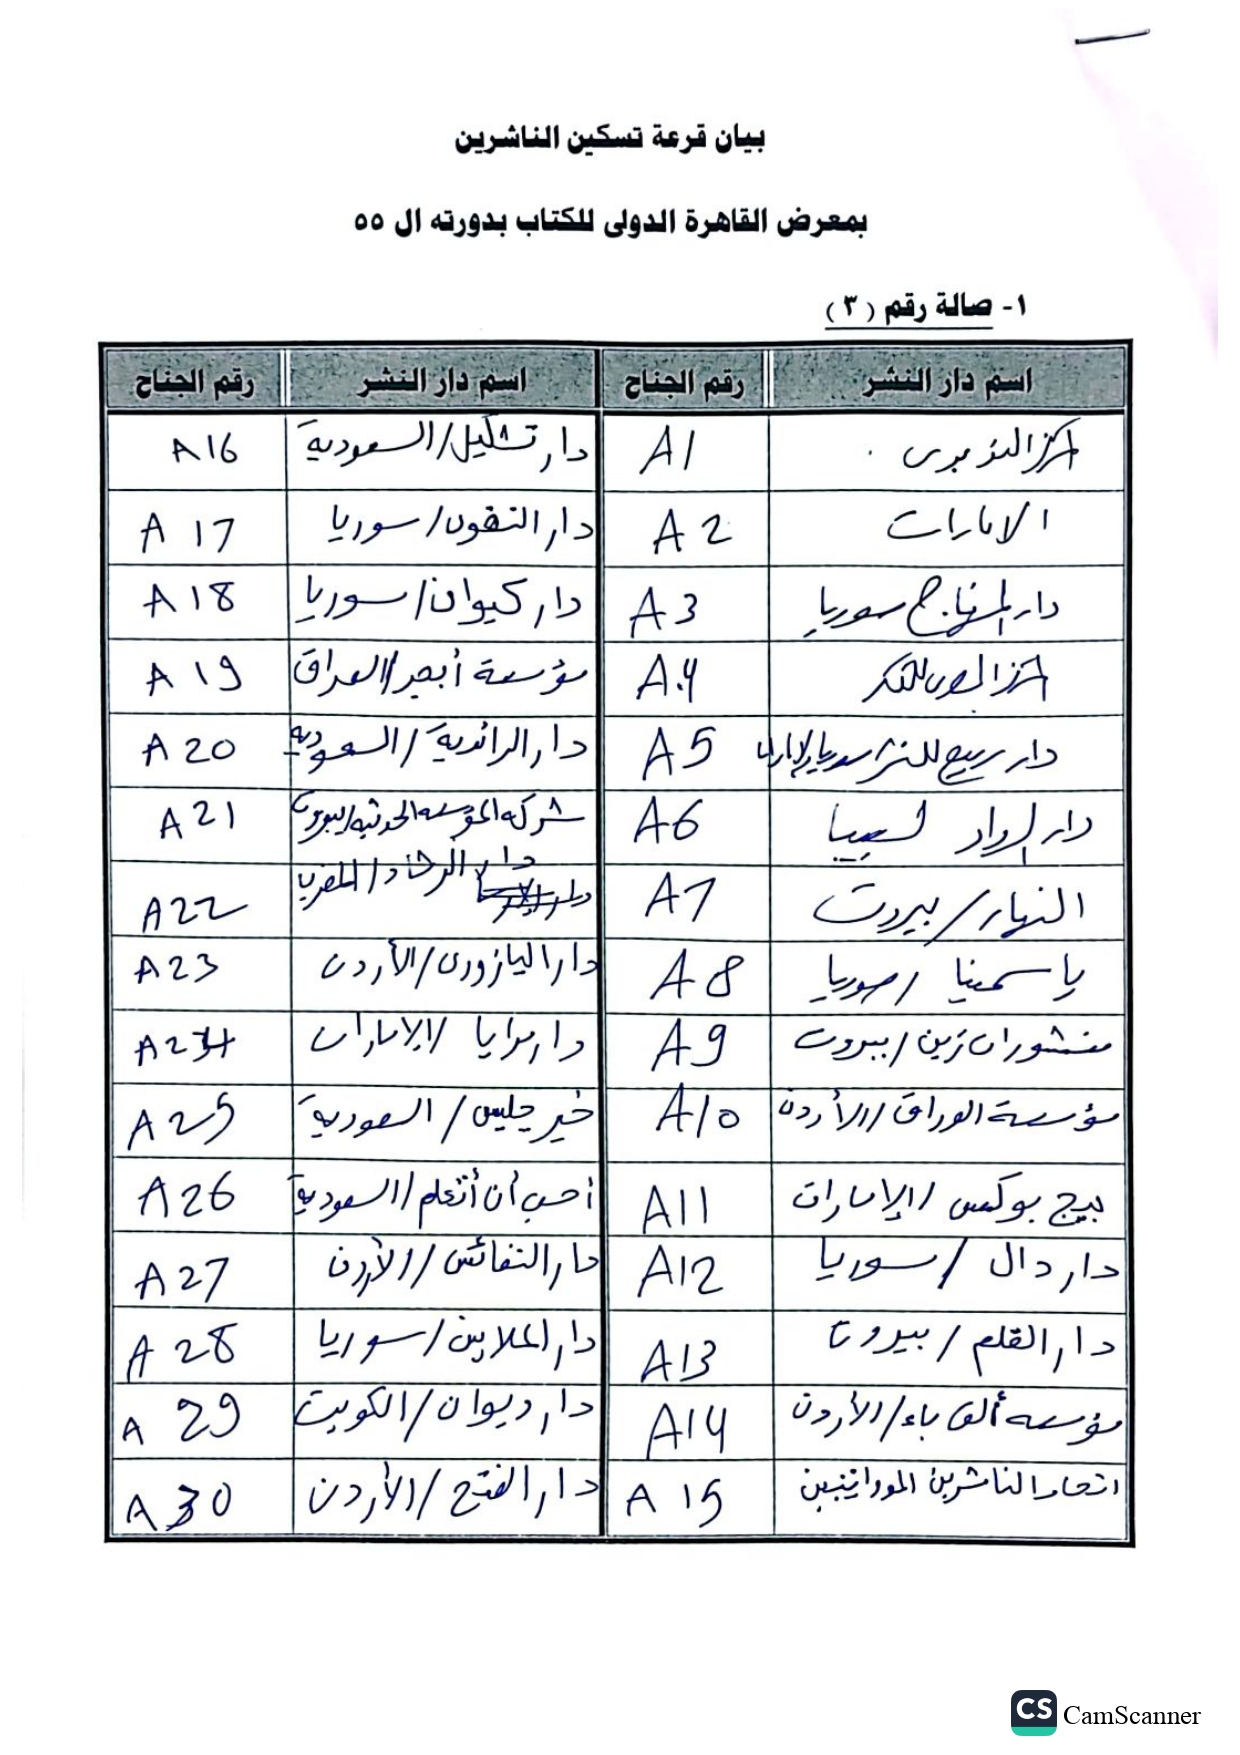 بيان قرعة تسكين الناشرين
بمعرض القاهرة الدولى للكتاب بدورته ال ٥٥
١- صالة رقم ( ٣ )
اسم دار النشر رقم الجناح اسم دار النشر رقم الجناح
A1 دار تشكيل/السعودية A16
الامارات A2 دار النفون/سوريا A17
دار المنهاج سوريا A3 دار كيوان/سوريا A18
A4 مؤسسة أبجد/العراق A19
دار ربيع للنشر سوريا/الامارات A5 دار الرائدية/السعودية A20
دار الرواد ليبيا A6 شركه المؤسسه الحديثه/بيروت A21
النهار/بيروت A7 دار الرشاد/المغرب A22
ياسمينا/سوريا A8 دار اليازورى/الأردن A23
منشورات زين/بيروت A9 دار مرايا/الإمارات A24
مؤسسة الوراق/الأردن A10 خير جليس/السعودية A25
بيج بوكس/الإمارات A11 أحب أن أتعلم/السعودية A26
دار دال/سوريا A12 دار النفائس/الأردن A27
دار القلم/بيروت A13 دار الملايين/سوريا A28
مؤسسه ألف باء/الأردن A14 دار ديوان/الكويت A29
اتحاد الناشرين A15 دار الفتح/الأردن A30
CS CamScanner